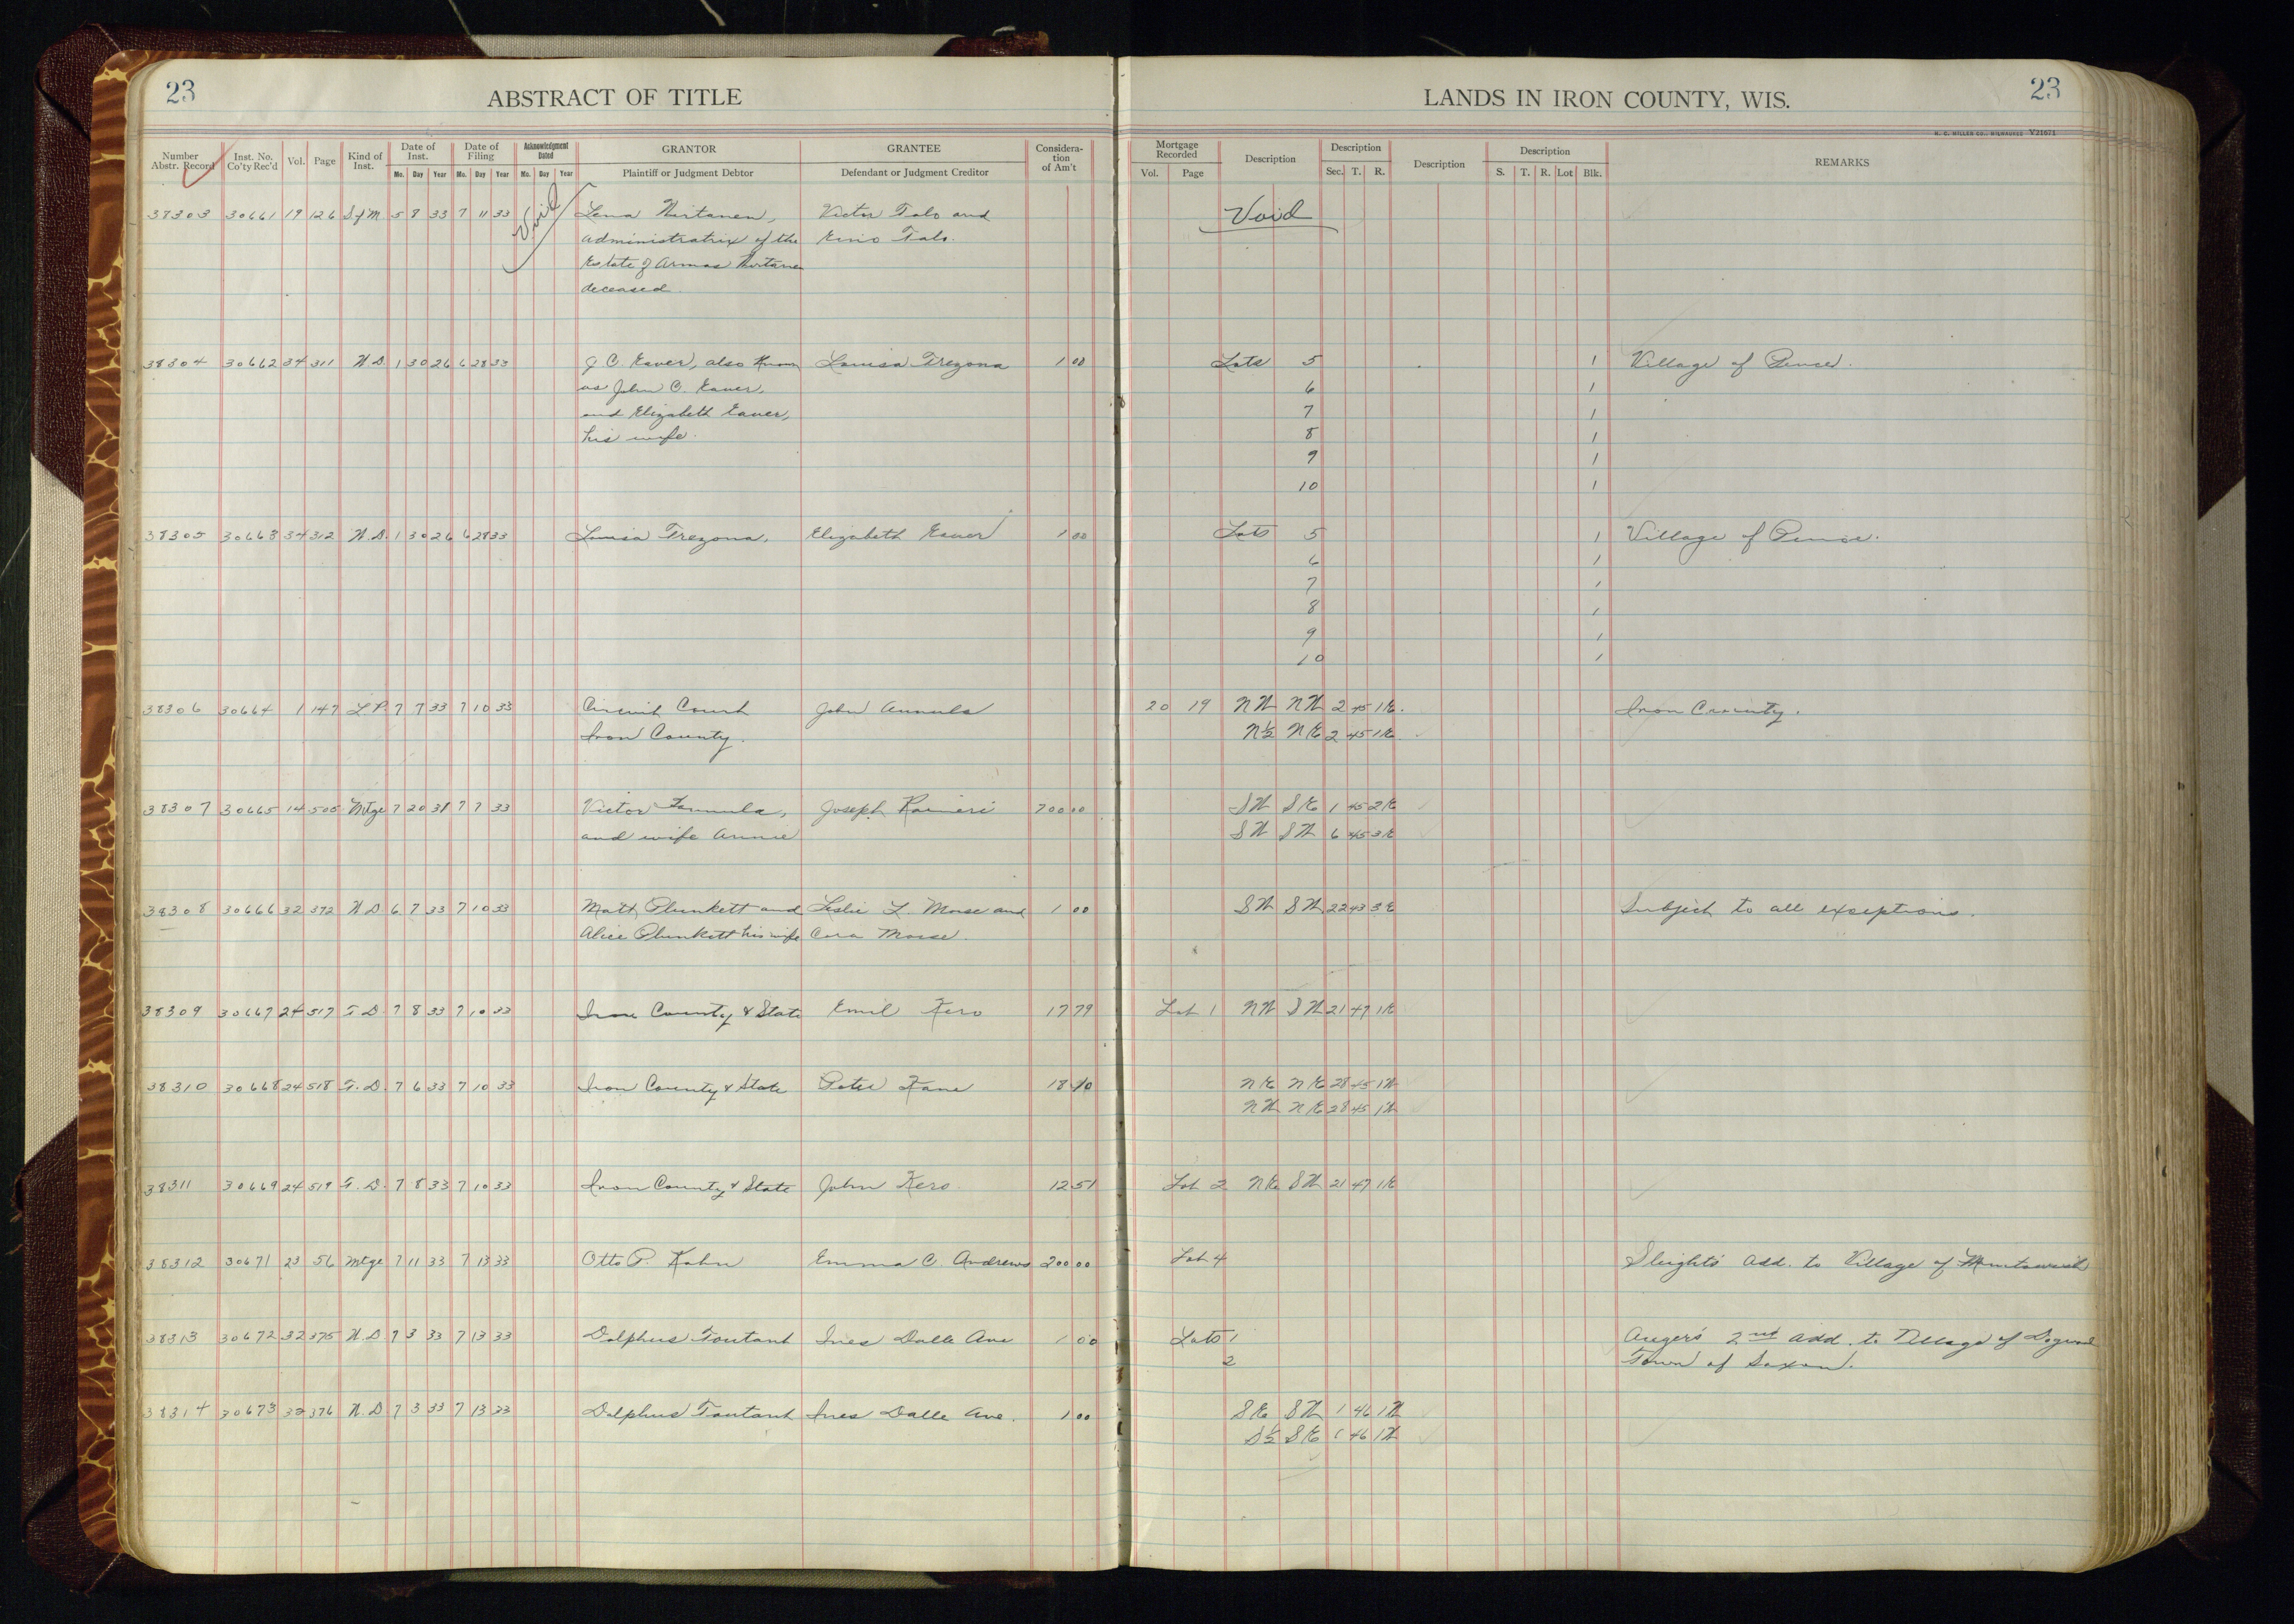 23
ABSTRACT OF TITLE
LANDS IN IRON COUNTY, WIS.
23
H. C. MILLER CO., MILWAUKEE Y21671
Number Abstr. Record Inst. No. Co'ty Rec'd Vol. Page Kind of Inst. Date of Inst. Mo. Day Year Date of Filing Mo. Day Year Acknowledgment Dated Mo. Day Year GRANTOR Plaintiff or Judgment Debtor GRANTEE Defendant or Judgment Creditor Considera-tion of Am't
Mortgage Recorded Vol. Page Description Description Sec. T. R. Description Description S. T. R. Lot Blk. REMARKS
38303 30661 19 126 5 8 33 7 11 33 Void Lena Victor Talo and Void
administratrix of the Eino Talo.
Estate of Armas
deceased.
38304 30662 34 311 W.D. 1 30 26 6 28 33 J. C. Eaver, also known Louisa Trezona 1 00 Lots 5 1 Village of Pence.
as John C. Eaver, 6 1
and Elizabeth Eaver, 7 1
his wife. 8 1
9 1
10 1
38305 30663 34 312 W.D. 1 30 26 6 28 33 Louisa Trezona, Elizabeth Eaver 1 00 Lots 5 1 Village of Pence.
6 1
7 1
8 1
9 1
10 1
38306 30664 1 147 L.P. 7 7 33 7 10 33 Circuit Court John 20 19 NW NW 2 45 1E. Iron County.
Iron County. N½ NE 2 45 1E
38307 30665 14 505 Mtge 7 20 31 7 7 33 Victor Joseph Raineri 700 00 SW SE 1 45 2E
and wife Annie SW SW 6 45 3E
38308 30666 32 372 W.D 6 7 33 7 10 33 Matt Plunkett and Leslie L. Morse and 1 00 SW SW 22 43 3E Subject to all exceptions.
Alice Plunkett his wife Cora Morse.
38309 30667 24 517 T.D. 7 8 33 7 10 33 Iron County & State Emil Kero 17 79 Lot 1 NW SW 21 47 1E
38310 30668 24 518 T.D. 7 6 33 7 10 33 Iron County & State Peter Kane 18 10 NE NE 28 45 1W
NW NE 28 45 1W
38311 30669 24 519 T.D. 7 8 33 7 10 33 Iron County & State John Kero. 12 51 Lot 2 NE SW 21 47 1E
38312 30671 23 56 Mtge 7 11 33 7 13 33 Otto P. Kahn Emma C. Andrews 200 00 Lot 4 Sleight's Add. to Village of
38313 30672 32 375 W.D. 7 3 33 7 13 33 Dolphus Toutant Ines Dalle Ave 1 00 Lots 1 Auger's 2nd Add. to Village of
2 Town of Saxon.
38314 30673 32 376 W.D 7 3 33 7 13 33 Dolphus Toutant Ines Dalle Ave. 1 00 SE SW 1 46 1W
S½ SE 1 46 1W